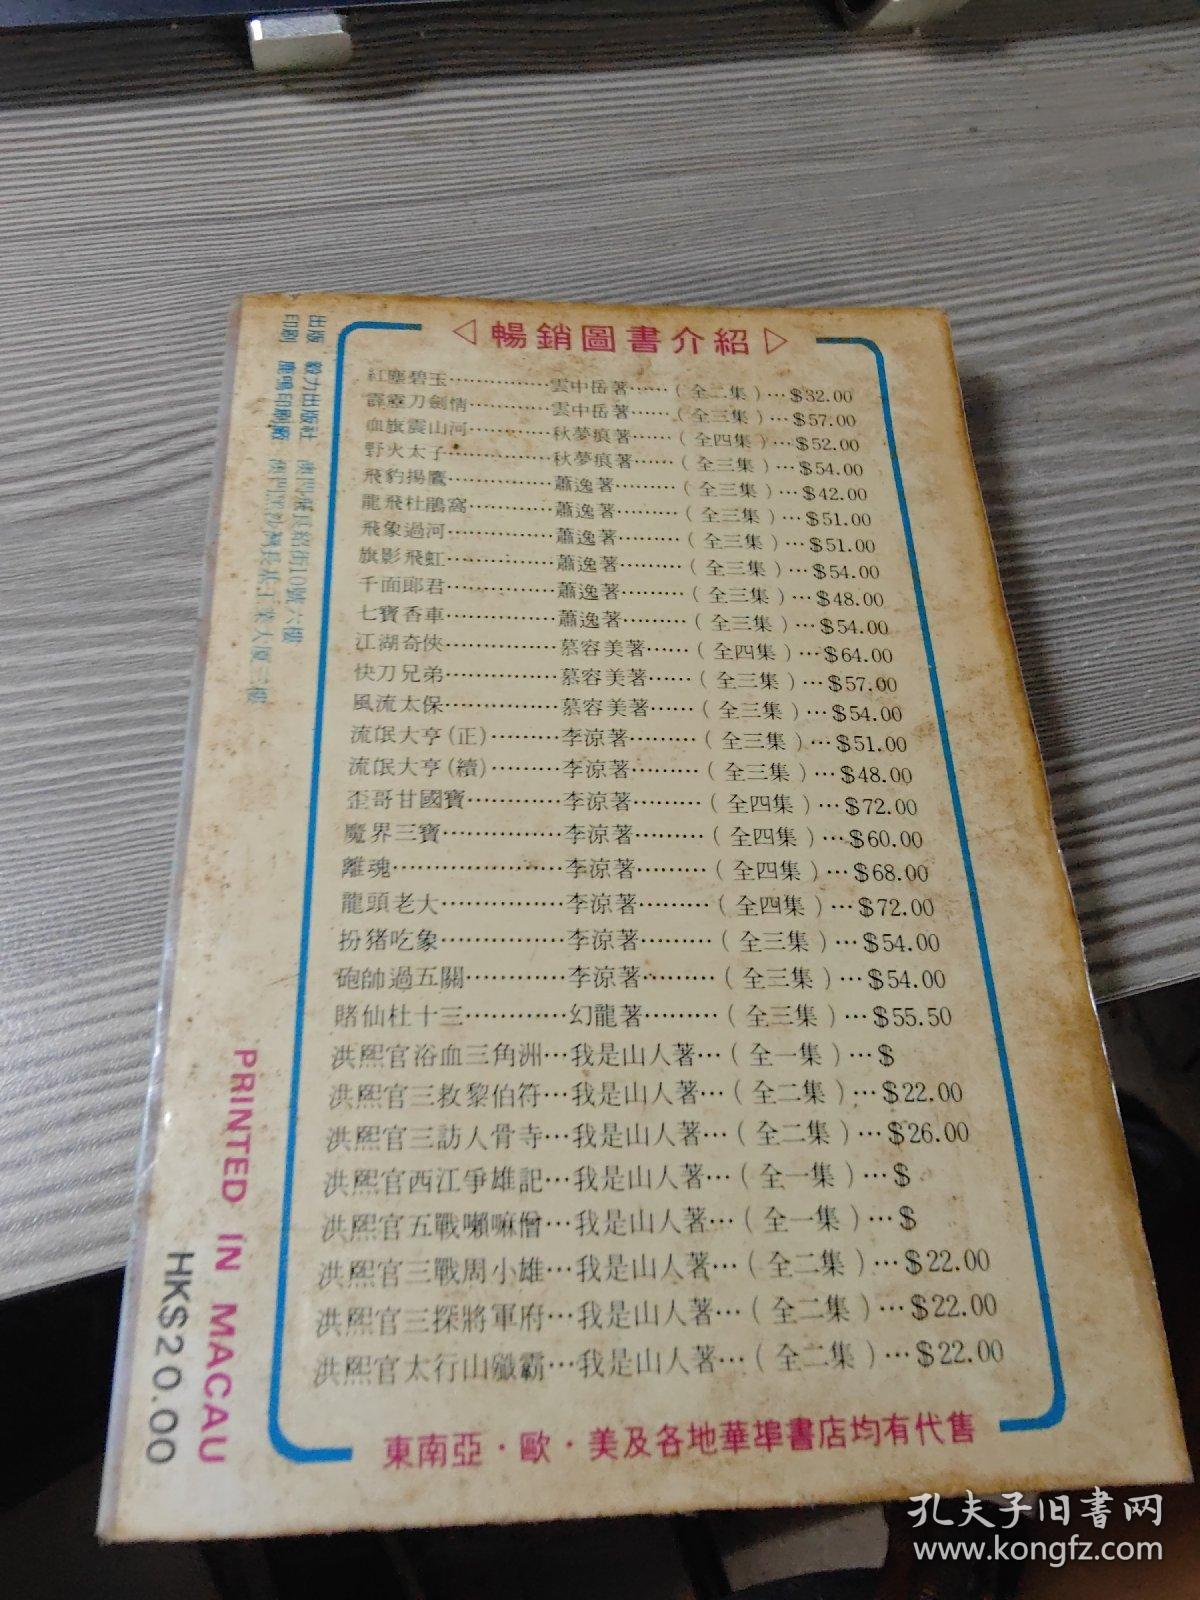 ◁暢銷圖書介紹▷
紅塵碧玉……………雲中岳著……(全二集)…$32.00
霹靂刀劍情…………雲中岳著……(全三集)…$57.00
血旗震山河…………秋夢痕著……(全四集)…$52.00
野火太子……………秋夢痕著……(全三集)…$54.00
飛豹揚鷹……………蕭逸著………(全三集)…$42.00
龍飛杜鵑窩…………蕭逸著………(全三集)…$51.00
飛象過河……………蕭逸著………(全三集)…$51.00
旗影飛虹……………蕭逸著………(全三集)…$54.00
千面郎君……………蕭逸著………(全三集)…$48.00
七寶香車……………蕭逸著………(全三集)…$54.00
江湖奇俠……………慕容美著……(全四集)…$64.00
快刀兄弟……………慕容美著……(全三集)…$57.00
風流太保……………慕容美著……(全三集)…$54.00
流氓大亨(正)………李涼著………(全三集)…$51.00
流氓大亨(續)………李涼著………(全三集)…$48.00
歪哥甘國寶…………李涼著………(全四集)…$72.00
魔界三寶……………李涼著………(全四集)…$60.00
離魂…………………李涼著………(全四集)…$68.00
龍頭老大……………李涼著………(全四集)…$72.00
扮猪吃象……………李涼著………(全三集)…$54.00
砲帥過五關…………李涼著………(全三集)…$54.00
賭仙杜十三…………幻龍著………(全三集)…$55.50
洪熙官浴血三角洲…我是山人著…(全一集)…$
洪熙官三救黎伯符…我是山人著…(全二集)…$22.00
洪熙官三訪人骨寺…我是山人著…(全二集)…$26.00
洪熙官西江爭雄記…我是山人著…(全一集)…$
洪熙官五戰嚩嘛僧…我是山人著…(全一集)…$
洪熙官三戰周小雄…我是山人著…(全二集)…$22.00
洪熙官三探將軍府…我是山人著…(全二集)…$22.00
洪熙官太行山殲霸…我是山人著…(全二集)…$22.00
東南亞·歐·美及各地華埠書店均有代售
出版 毅力出版社 澳門
街10號六樓
印刷 鹿鳴印刷廠 澳門黑沙灣長
工業大廈三樓
PRINTED IN MACAU
HK$20.00
孔夫子旧书网
www.kongfz.com